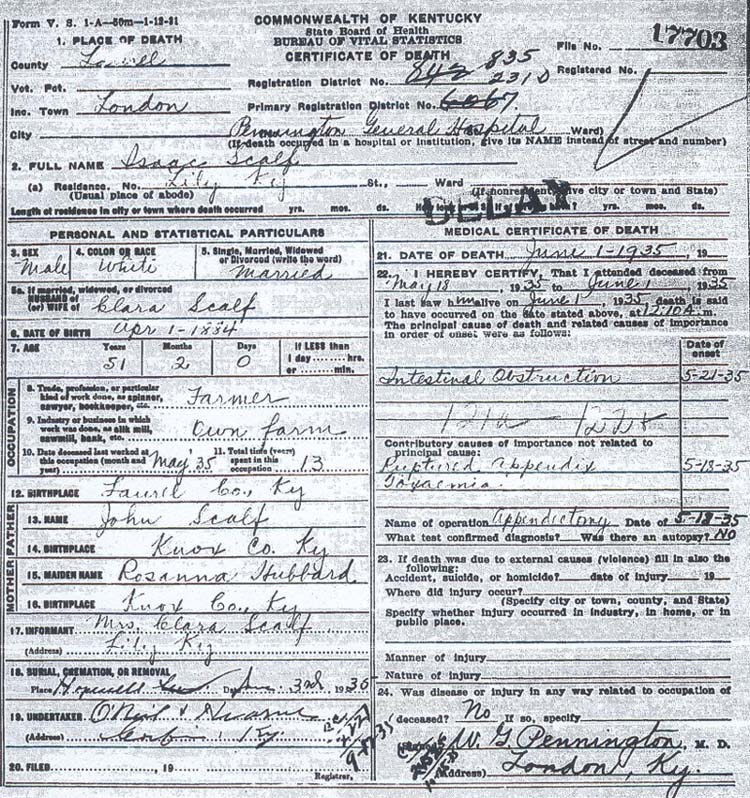 Form V. S. 1-A—50m—1-12-31
COMMONWEALTH OF KENTUCKY
State Board of Health
BUREAU OF VITAL STATISTICS
CERTIFICATE OF DEATH
File No. 17703
Registered No.
1. PLACE OF DEATH
County Laurel
Vot. Pct.
Inc. Town London
City
Registration District No. 842 835
2310
Primary Registration District No. 6067
Pennington General Hospital Ward)
(If death occurred in a hospital or institution, give its NAME instead of street and number)
2. FULL NAME Isaac Scalf
(a) Residence. No. Lily Ky St., Ward
(Usual place of abode) (If nonresident give city or town and State)
Length of residence in city or town where death occurred yrs. mos. ds. yrs. mos. ds.
DELAY
PERSONAL AND STATISTICAL PARTICULARS
3. SEX Male
4. COLOR OR RACE White
5. Single, Married, Widowed or Divorced (write the word) Married
5a. If married, widowed, or divorced
HUSBAND of
(or) WIFE of Clara Scalf
6. DATE OF BIRTH Apr 1-1884
7. AGE Years 51 Months 2 Days 0 If LESS than 1 day hrs. or min.
OCCUPATION
8. Trade, profession, or particular kind of work done, as spinner, sawyer, bookkeeper, etc. Farmer
9. Industry or business in which work was done, as silk mill, sawmill, bank, etc. Own farm
10. Date deceased last worked at this occupation (month and year) May 35
11. Total time (years) spent in this occupation 13
12. BIRTHPLACE Laurel Co., Ky
FATHER
13. NAME John Scalf
14. BIRTHPLACE Knox Co. Ky
MOTHER
15. MAIDEN NAME Rosanna Hubbard
16. BIRTHPLACE Knox Co., Ky
17. INFORMANT Mrs. Clara Scalf
(Address) Lily Ky
18. BURIAL, CREMATION, OR REMOVAL
Place Hopewell Date June 3rd 1935
19. UNDERTAKER O'Neil &
(Address) Ky.
20. FILED 19
Registrar.
MEDICAL CERTIFICATE OF DEATH
21. DATE OF DEATH June 1-1935, 19
22. I HEREBY CERTIFY, That I attended deceased from
May 18 1935 to June 1, 1935
I last saw him alive on June 1, 1935 death is said
to have occurred on the date stated above, at 12:10A. m.
The principal cause of death and related causes of importance in order of onset were as follows:
Date of onset
Intestinal Obstruction 5-21-35
121a — 122
Contributory causes of importance not related to principal cause:
Ruptured Appendix 5-18-35
Toxaemia
Name of operation Appendectomy Date of 5-18-35
What test confirmed diagnosis? Was there an autopsy? No
23. If death was due to external causes (violence) fill in also the following:
Accident, suicide, or homicide? date of injury 19
Where did injury occur?
(Specify city or town, county, and State)
Specify whether injury occurred in industry, in home, or in public place.
Manner of injury
Nature of injury
24. Was disease or injury in any way related to occupation of
deceased? No If so, specify
(Signed) W. G. Pennington, M. D.
(Address) London, Ky.